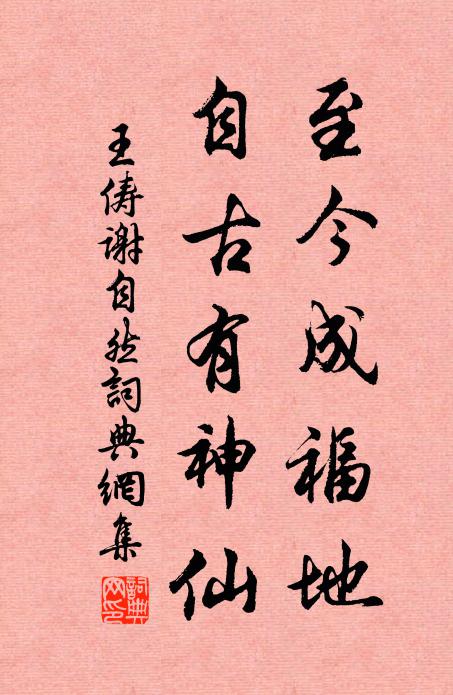 至今成福地
自古有神仙
王俦谢自然詞典網集
詞典網印